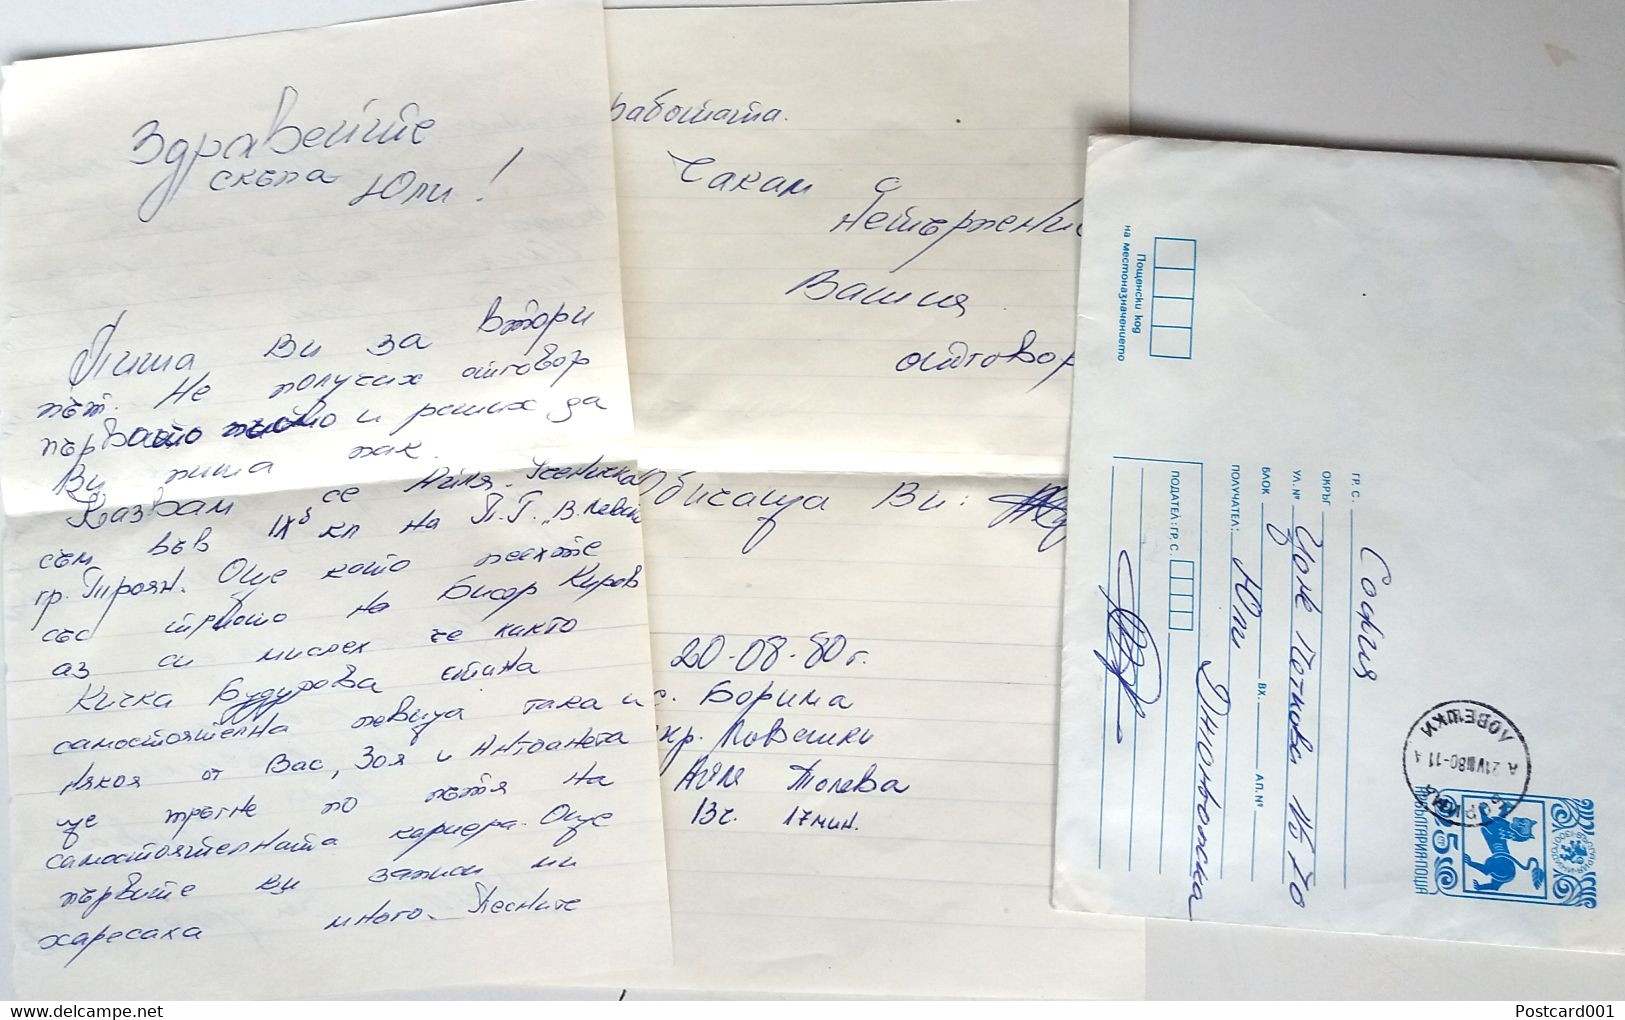 Здравейте
скъпа Юли!
Пиша Ви за втори
път. Не получих отговор
първото писмо и реших да
Ви пиша пак.
Казвам се Ученичка
съм във IXб кл на П.Г. „В. Левски
гр. Троян. Още като пеехте
със триото на Бисер Киров
аз си мислех че както
Кичка Бодурова стана
самостоятелна певица така и
някоя от Вас, Зоя и Антоанета
ще тръгне по пътя на
самостоятелната кариера. Още
първите ви записи ми
харесаха много. Песните
работата.
Чакам с
нетърпение
Вашия
отговор
Обичаща Ви:
20.08.80г.
с. Борима
окр. Ловешки
Толева
13ч. 17мин.
Пощенски код
на местоназначението
ГР. С. София
ОКРЪГ
УЛ. № Цоне Петкова №
БЛОК ВХ. АП. №
ПОЛУЧАТЕЛ: Юли
Дннонвожска
ПОДАТЕЛ: ГР. С.
БОРИМА
21 VIII 80-11
ЛОВЕШКИ
НР БЪЛГАРИЯ ПОЩА
5
delcampe.net
Postcard001